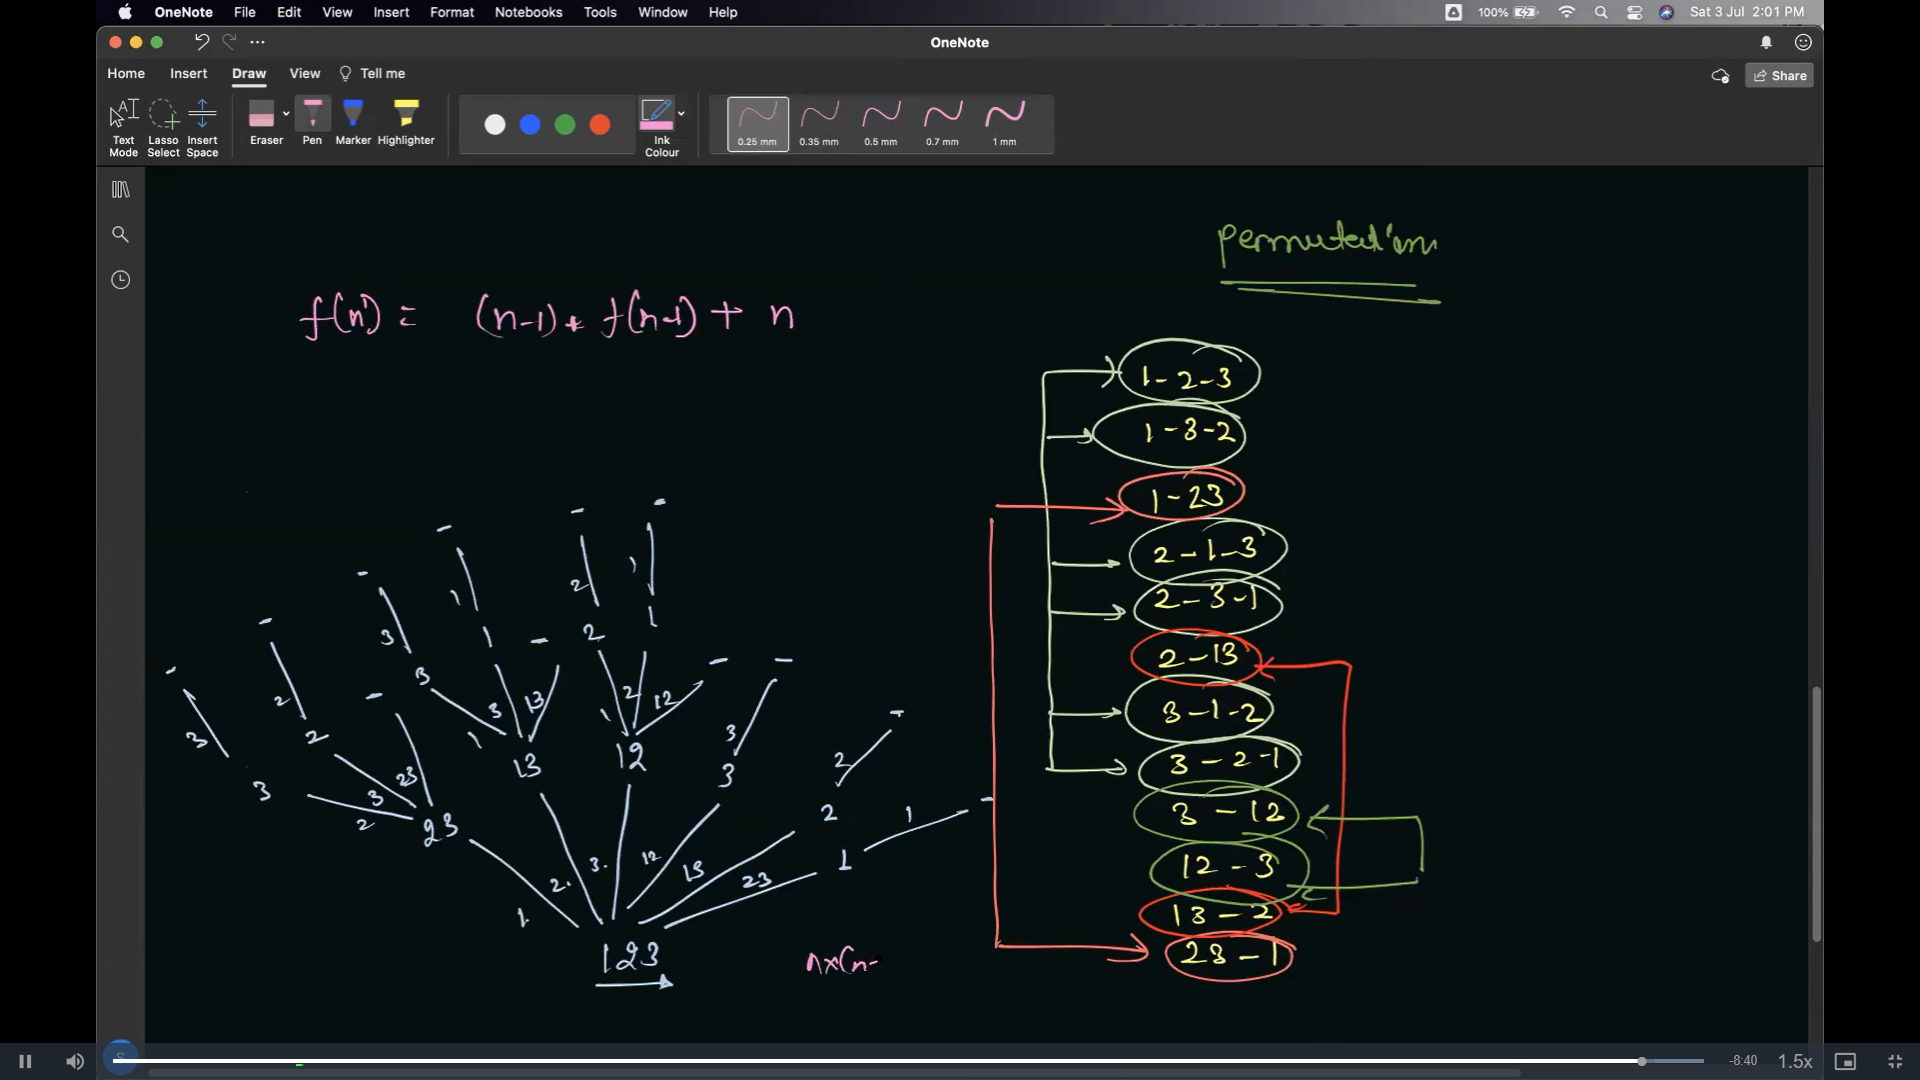 OneNote File Edit View Insert Format Notebooks Tools Window Help 100% Sat 3 Jul 2:01 PM
OneNote
Home Insert Draw View Tell me Share
Text Mode Lasso Select Insert Space Eraser Pen Marker Highlighter Ink Colour 0.25 mm 0.35 mm 0.5 mm 0.7 mm 1 mm
permutation
f(n) = (n-1) * f(n-1) + n
1-2-3
1-3-2
1-23
2-1-3
2-3-1
2-13
3-1-2
3-2-1
3-12
12-3
13-2
23-1
- - -
- 1 2 1
- 3 1 - 2 1
- 2 3 3 13 1 2 12 - -
3 2 - 1 13 12 3 3 2 -
3 2 3 23 23 2 1 -
1 2 3 12 13 23 1
123
nx(n-
-8:40 1.5x